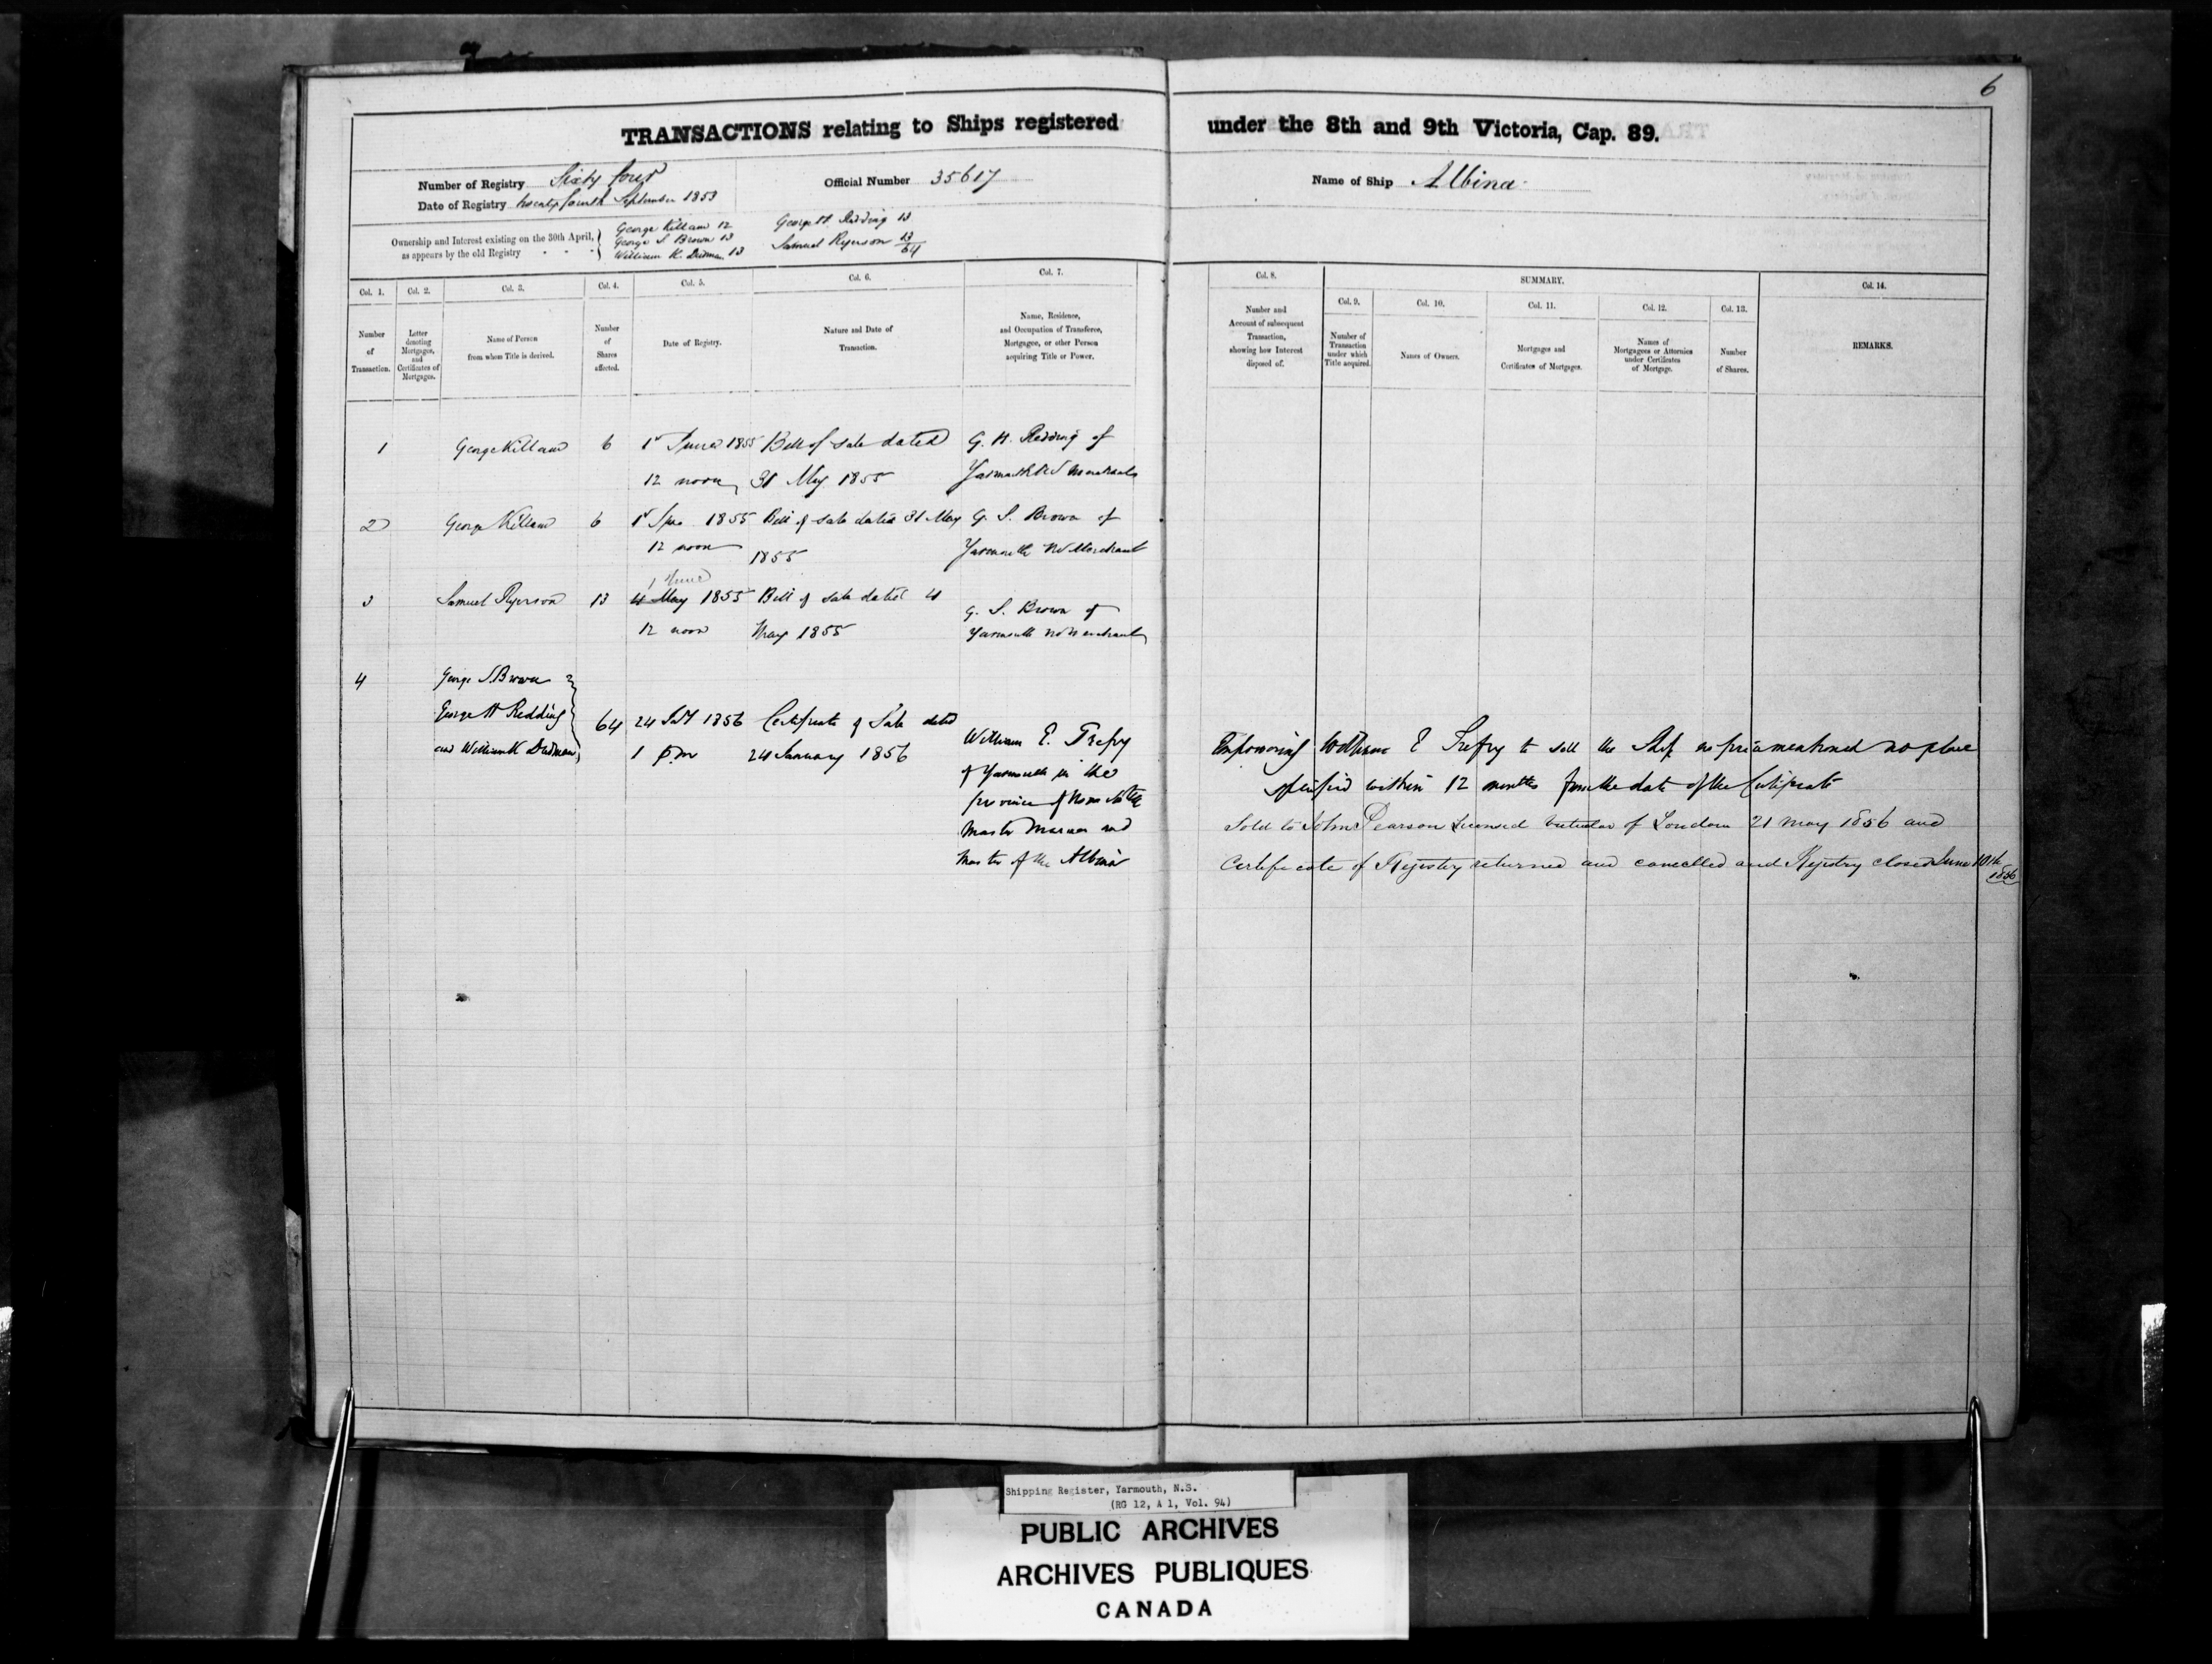 6
TRANSACTIONS relating to Ships registered under the 8th and 9th Victoria, Cap. 89.
Number of Registry Sixty four
Official Number 35617
Name of Ship Albina
Date of Registry twenty fourth September 1853
Ownership and Interest existing on the 30th April, as appears by the old Registry
George Killam 12
George S Brown 13
William K. Dudman 13
George H Redding 13
Samuel Ryerson 13/64
Col. 1.
Number of Transaction.
Col. 2.
Letter denoting Mortgages, and Certificates of Mortgages.
Col. 3.
Name of Person from whom Title is derived.
Col. 4.
Number of Shares affected.
Col. 5.
Date of Registry.
Col. 6.
Nature and Date of Transaction.
Col. 7.
Name, Residence, and Occupation of Transferee, Mortgagee, or other Person acquiring Title or Power.
Col. 8.
Number and Account of subsequent Transaction, showing how Interest disposed of.
SUMMARY.
Col. 9.
Number of Transaction under which Title acquired.
Col. 10.
Names of Owners.
Col. 11.
Mortgages and Certificates of Mortgages.
Col. 12.
Names of Mortgagees or Attornies under Certificates of Mortgage.
Col. 13.
Number of Shares.
Col. 14.
REMARKS.
1 George Killam 6 1 June 1855 Bill of sale dated G. H. Redding of
12 noon 31 May 1855 Yarmouth NS Merchant
2 George Killam 6 1 1855 Bill of sale dated 31 May G. S. Brown of
12 noon 1855 Yarmouth NS Merchant
1 June
3 Samuel Ryerson 13 4 May 1855 Bill of sale dated 4 G. S. Brown of
12 noon May 1855 Yarmouth NS Merchant
4 George S. Brown
George H Redding 64 24 1856 Certificate of Sale dated
and William K Dudman 1 P.m 24 January 1856
William E. Trefry
of Yarmouth in the
province of Nova Scotia
Master Mariner and
Master of the Albina
Empowering William E Trefry to sell the Ship no price mentioned no place
specified within 12 months from the date of the Certificate
Sold to John Pearson Licensed Victualer of London 21 May 1856 and
Certificate of Registry returned and cancelled and Registry closed June 10th
1856
Shipping Register, Yarmouth, N.S.
(RG 12, A 1, Vol. 94)
PUBLIC ARCHIVES
ARCHIVES PUBLIQUES
CANADA